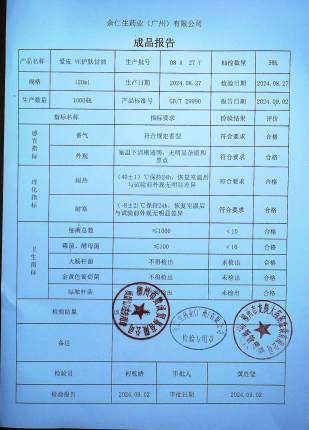 余仁生药业（广州）有限公司
成品报告
产品名称 爱皮 VE护肤甘油 生产批号 08 A 27 T 抽检数量 5瓶
规格 120ml 生产日期 2024.08.27 检验日期 2024.08.27
生产数量 1000瓶 产品标准号 GB/T 29990 报告日期 2024.09.02
指标名称 指标要求 检验结果 评价
感官指标 香气 符合规定香型 符合要求 合格
外观 室温下清晰透明，无明显杂质和黑点 符合要求 合格
理化指标 耐热 (40±1)℃保持24h，恢复室温后与试验前外观无明显差异 符合要求 合格
耐寒 (-8±2)℃保持24h，恢复室温后与试验前外观无明显差异 符合要求 合格
卫生指标 细菌总数 ≤1000 <10 合格
霉菌、酵母菌 ≤100 <10 合格
大肠杆菌 不得检出 未检出 合格
金黄色葡萄菌 不得检出 未检出 合格
绿脓杆菌 不得检出 未检出 合格
检验结果
检验专用章
备注
检验员 审批人 黄胜坚
检验报告 2024.09.02 审批日期 2024.09.02